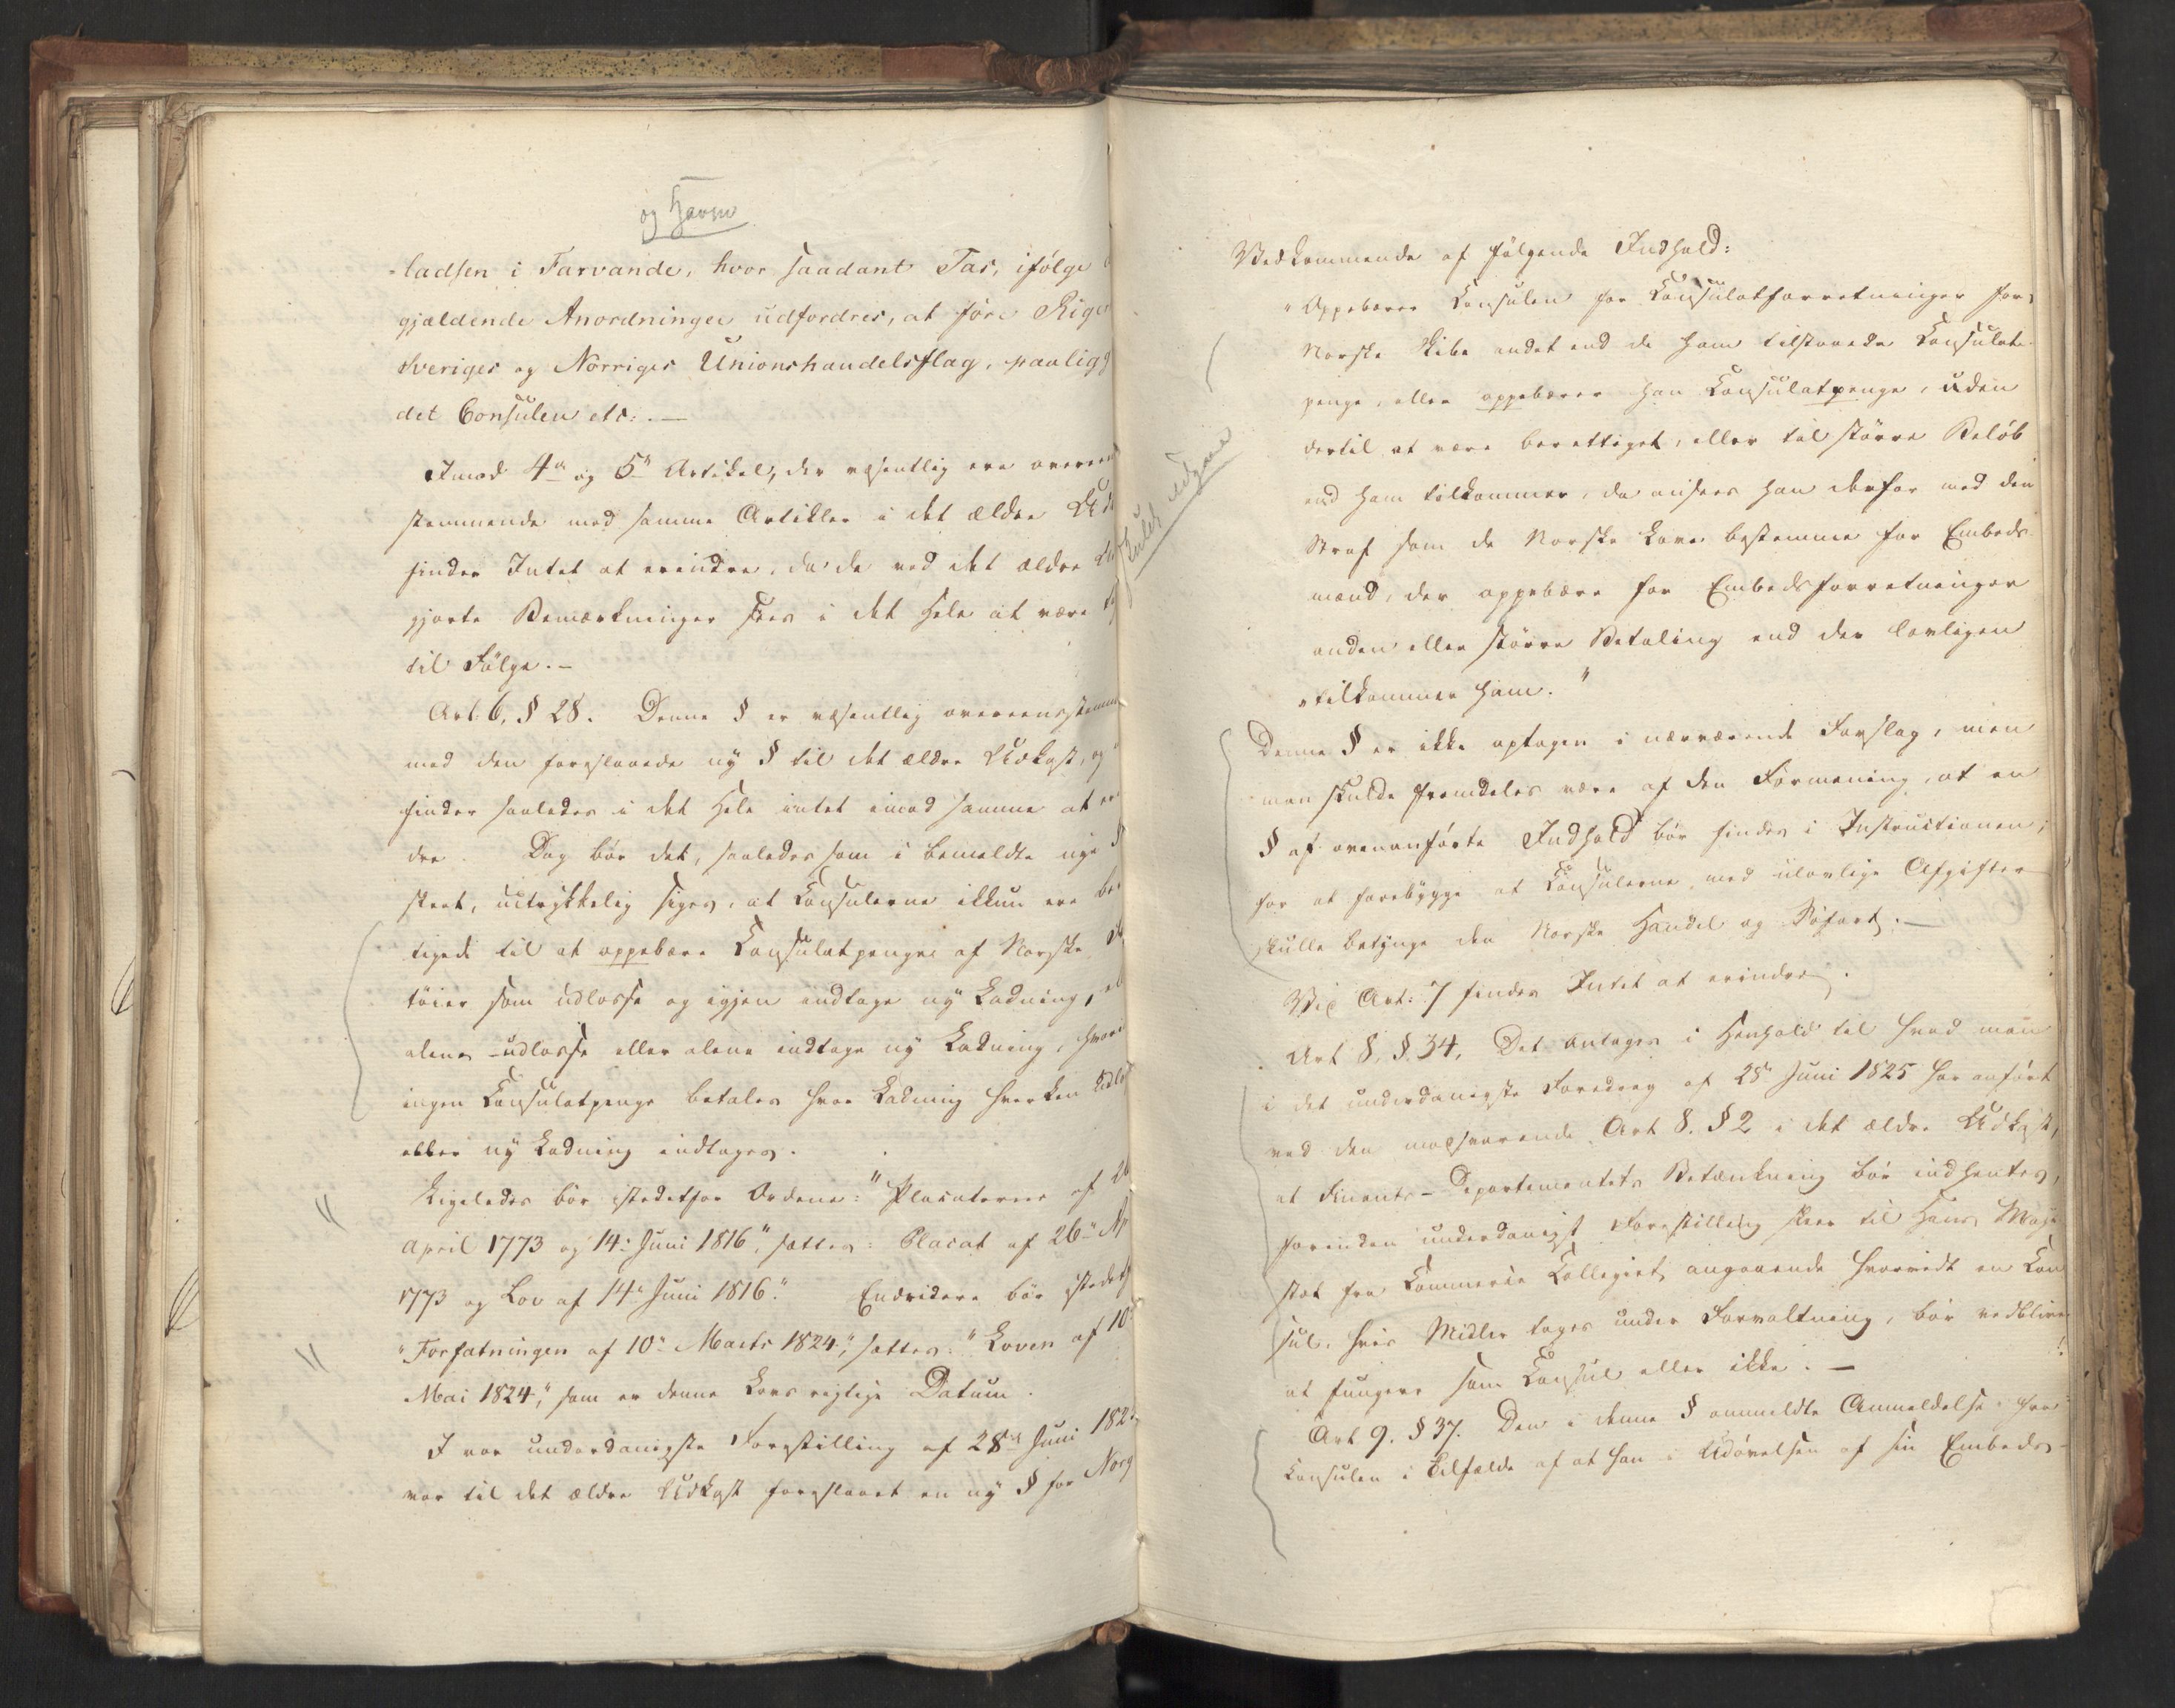 og Havne
-ladsen i Farvande, hvor saadant Pas, ifølge
gjældende Anordninger udfordres, at føre Rige
Sveriges og Norriges Unionshandelsflag, paalig
det Consulen etc: . —
Imod 4de og 5te Artikel, der væsentlig ere overeens
stemmende med samme Artikler i det ældre Ud
findes Intet at erindre, da de ved det ældre
gjorte Bemærkninger sees i det Hele at være
til Følge. —
Art. 6, § 28. Denne § er væsentlig overeensstemm
med den foreslaaede ny § til det ældre Udkast, og
findes saaledes i det Hele intet imod samme at er
dre. Dog bør det, saaledes som i bemeldte nye §
skeet, udtrykkelig siges, at Consulerne ikkun ere be
tigede til at oppebære Consulatpenge af Norske
tøier som udlosse og igjen indtage ny Ladning,
alene udlosse eller alene indtage ny Ladning, hvori
ingen Consulatpenge betales hvor Ladning hverken udlos
eller ny Ladning indtages.
Ligeledes bør istedetfor Ordene: "Placaterne af 26
April 1773 og 14. Juni 1816", sættes: Placat af 26de Ap
1773 og Lov af 14de Juni 1816." Endvidere bør istedetf
"Forfatningen af 10de Marts 1824", sættes: "Loven af 10
Mai 1824," som er denne Lovs rigtige Datum.
I vor underdanigste Forestilling af 28de Juni 1825
var til det ældre Udkast foreslaaet en ny § for Norg
Vedkommende af følgende Indhold:
"Oppebærer Consulen for Consulatforretninger for
Norske Skibe andet end de ham tilstaaede Consulat-
penge, eller oppebærer han Consulatpenge, uden
dertil at være berettiget, eller til større Beløb
end ham tilkommer, da ansees han derfor med den
Straf som de Norske Love bestemme for Embeds-
mænd, der oppebære for Embedsforretninger
anden eller større Betaling end der lovligen
"tilkommer ham."
Denne § er ikke optagen i nærværende Forslag, men
man skulde fremdeles være af den Formening, at en
§ af ovenanførte Indhold bør findes i Instructionen,
for at forebygge at Consulerne med ulovlige Afgifter
skulle betynge den Norske Handel og Søfart. —
Ved Art: 7 findes Intet at erindre.
Art 8, §. 34. Det antages i Henhold til hvad man
i det underdanigste Foredrag af 28de Juni 1825 har anført
ved den modsvarende Art 8. § 2 i det ældre Udkast,
at Finants-Departementets Betænkning bør indhentes,
forinden underdanigst Forestilling skeer til Hans Maje
stæt fra Commerce Collegiet angaaende hvorvidt en Con
sul, hvis Midler tages under Forvaltning, bør vedblive
at fungere som Consul eller ikke. —
Art 9. § 37. Den i denne § ommeldte Anmeldelse fra
Consulen i Tilfælde af at han i Udøvelsen af sin Embeds-